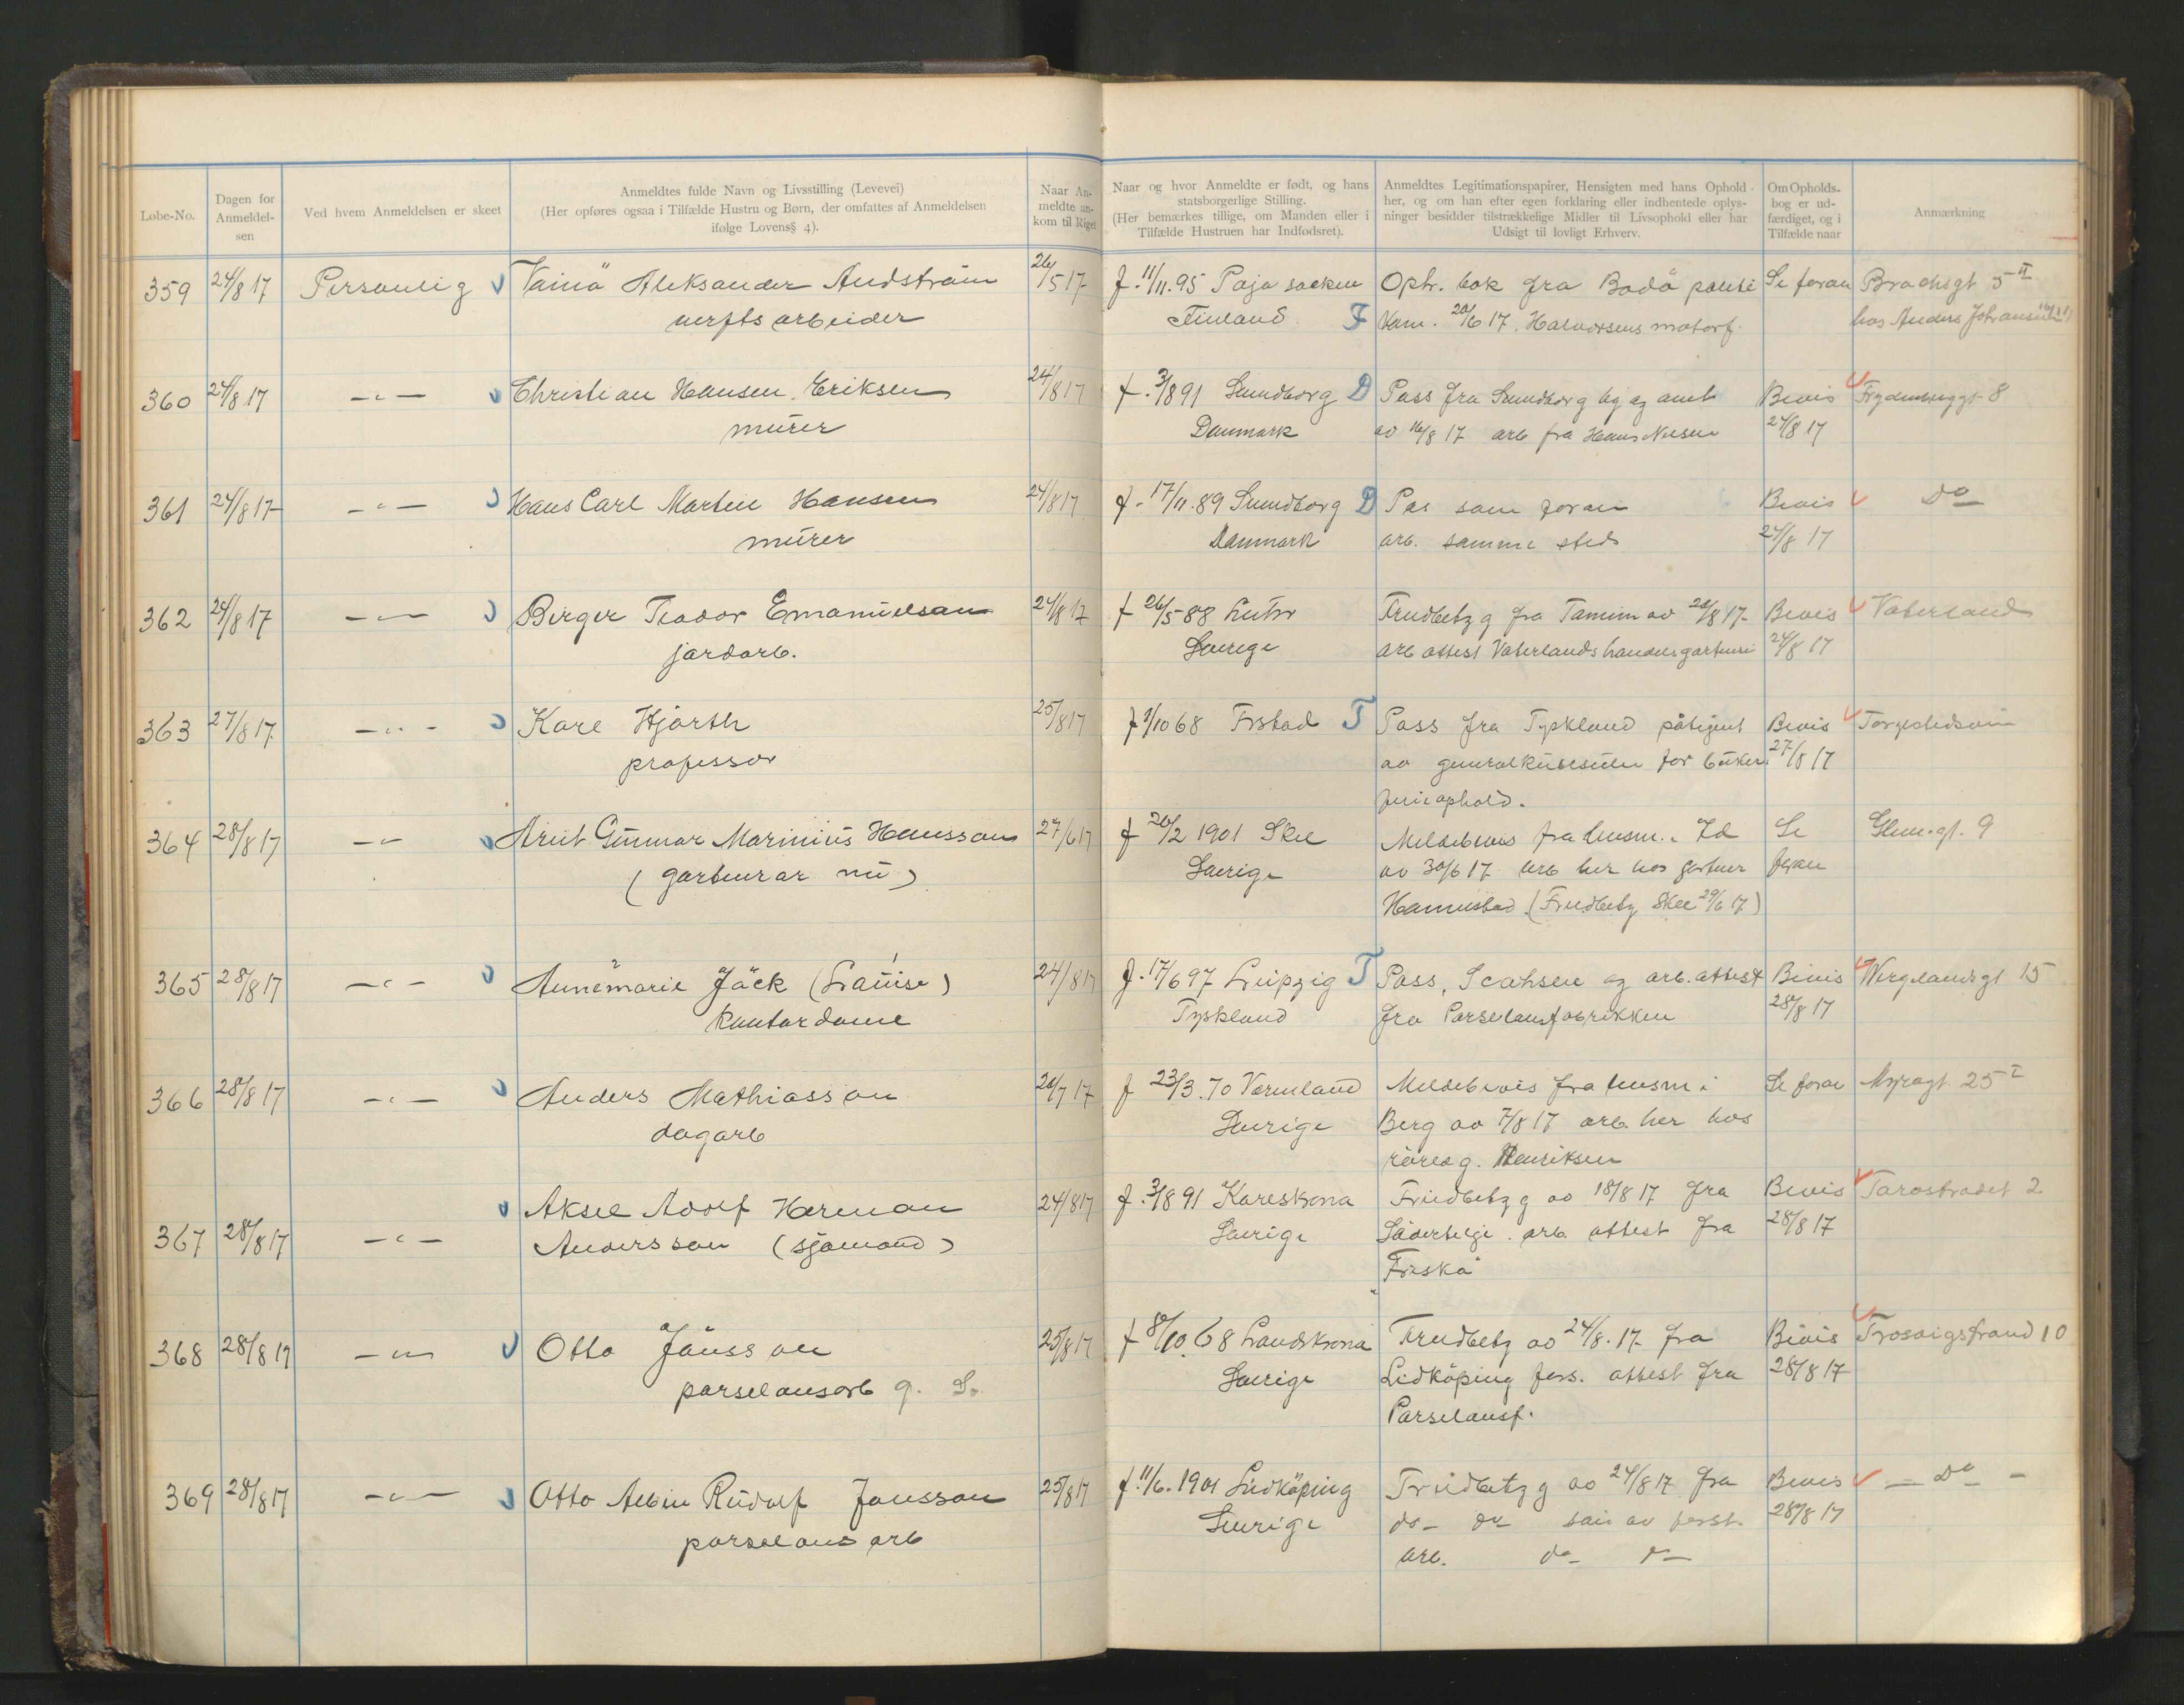 Løbe-No.
Dagen for
Anmeldel-
sen
Ved hvem Anmeldelsen er skeet
Anmeldtes fulde Navn og Livsstilling (Levevei)
(Her opføres ogsaa i Tilfælde Hustru og Børn, der omfattes af Anmeldelsen
ifølge Lovens§ 4).
Naar An-
meldte an-
kom til Riget
Naar og hvor Anmeldte er født, og hans
statsborgerlige Stilling.
(Her bemærkes tillige, om Manden eller i
Tilfælde Hustruen har Indfødsret).
Anmeldtes Legitimationspapirer, Hensigten med hans Ophold
her, og om han efter egen forklaring eller indhentede oplys-
ninger besidder tilstrækkelige Midler til Livsophold eller har
Udsigt til lovligt Erhverv.
Om Opholds-
bog er ud-
færdiget, og i
Tilfælde naar
Anmærkning
359 24/8 17 Personlig Vainö Aleksander Andström 26/5 17 f. 11/11.95 Paja socken Oph. bok fra Bodö politi Se foran Brochsgt 5 II
verftsarbeider Finland F Kam. 20/6 17. Halvorsens motorf. hos Anders Johansen
360 24/8 17 -"- Christian Hansen Eriksen 24/8 17 f. 3/8 91 Svendborg D Pass fra Svendborg by og amt Bevis Frydenbergt 8
murer Danmark av 16/8 17 arb fra Hans Nilsen 24/8 17
361 24/8 17 -"- Hans Carl Martin Hansen 24/8 17 f. 17/11.89 Svendborg D Pas som foran Bevis Do
murer Danmark arb. samme sted 24/8 17
362 24/8 17 -"- Birger Teodor Emanuelsson 24/8 17 f 26/5 88 Sverige Fredbetyg fra Tanum av 20/8 17 Bevis Vaterland
jordarb. arb attest Vaterlands handelsgartneri 24/8 17
363 27/8 17 -"- Karl Hjorth 25/8 17 f 1/10 68 T Pass fra Tyskland påtegnet Bevis
professor av generalkonsulen for 27/8 17
ferieophold.
364 28/8 17 -"- Arvit Gunnar Marinius Hansson 27/6 17 f 20/2 1901 Skee Meldebevis fra lensm. i Id Se Glem.gt. 9
(gartnerar nu) Sverige av 30/6 17 arb her hos gartner foran
Hannestad (Fredbetyg Skee 29/6 17)
365 28/8 17 -"- Annemarie Jäck (Louise) 24/8 17 f. 17/6 97 Leipzig T Pass, Scahsen og arb. attest Bevis Wergelandsgt 15
kontordame Tyskland fra Porselansfabrikken 28/8 17
366 28/8 17 -"- Anders Mathiasson 20/7 17 f 23/3.70 Vermland Meldebevis fra lensm i Se foran Myragt 25 I
dagarb Sverige Berg av 7/8 17 arb. her hos
rörlæg. Henriksen
367 28/8 17 -"- Aksel Adolf Herman 24/8 17 f. 3/8 91 Karlskrona Fredbetyg av 18/8 17 fra Bevis Tarostradet 2
Andersson (sjömand) Sverige Södertelje. arb. attest fra 28/8 17
"Friska"
368 28/8 17 -"- Otto Jönsson 25/8 17 f 8/10.68 Landskrona Fredbetyg av 24/8.17 fra Bevis Trosvigstrand 10
porselansarb g. S. Sverige Lidköping fors. attest fra 28/8 17
Porselansf.
369 28/8 17 -"- Otto Albin Rudolf Jonsson 25/8 17 f. 11/6.1901 Lidköping Fredbetyg av 24/8 17 fra Bevis - Do -
porselans arb Sverige do- do sön av forst. 28/8 17
arb. do- do